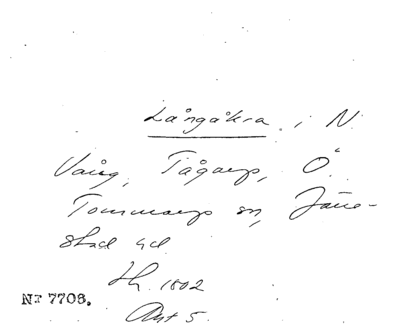 Långåkra i N
Vång, Tågarp, Ö.
Tommarps sn, Järre-
stad hd
Lh. 1802
Akt 5.
Nr 7708.